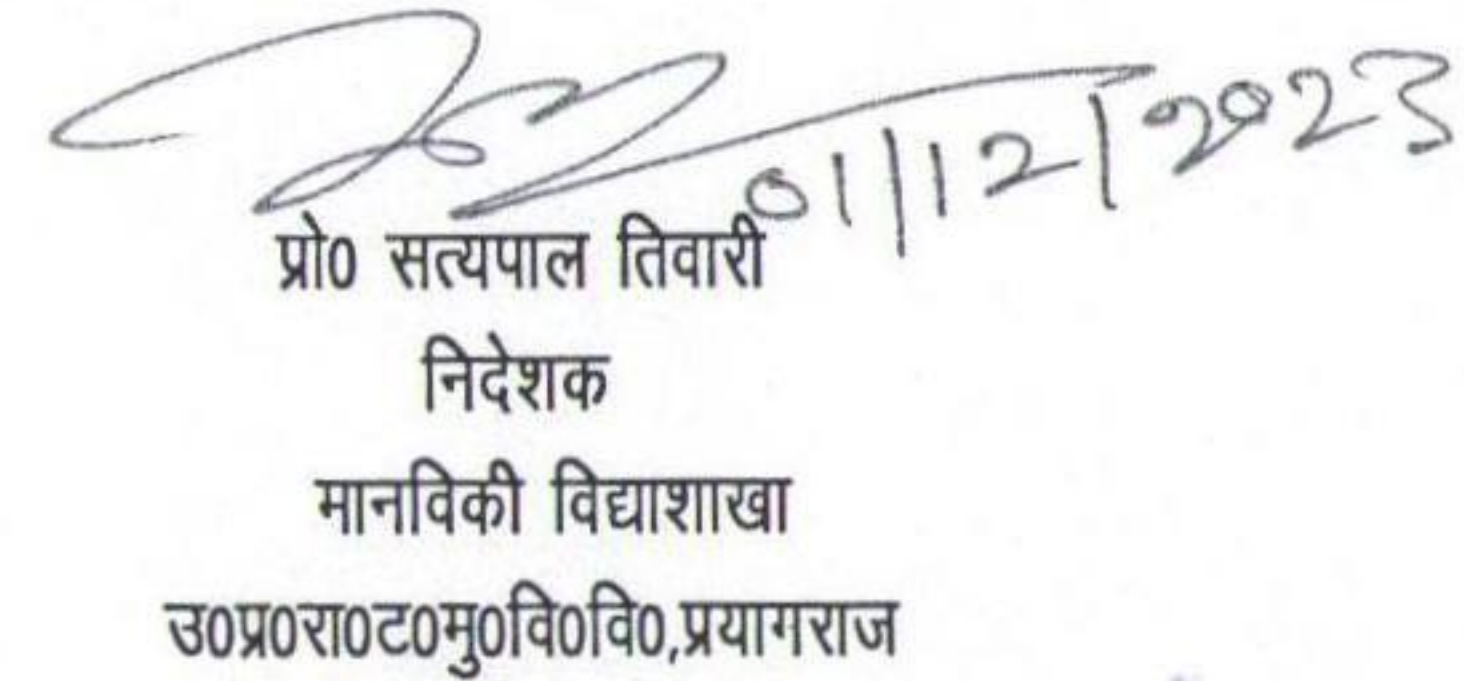 01/12/2023
प्रो0 सत्यपाल तिवारी
निदेशक
मानविकी विद्याशाखा
उ0प्र0रा0ट0मु0वि0वि0,प्रयागराज